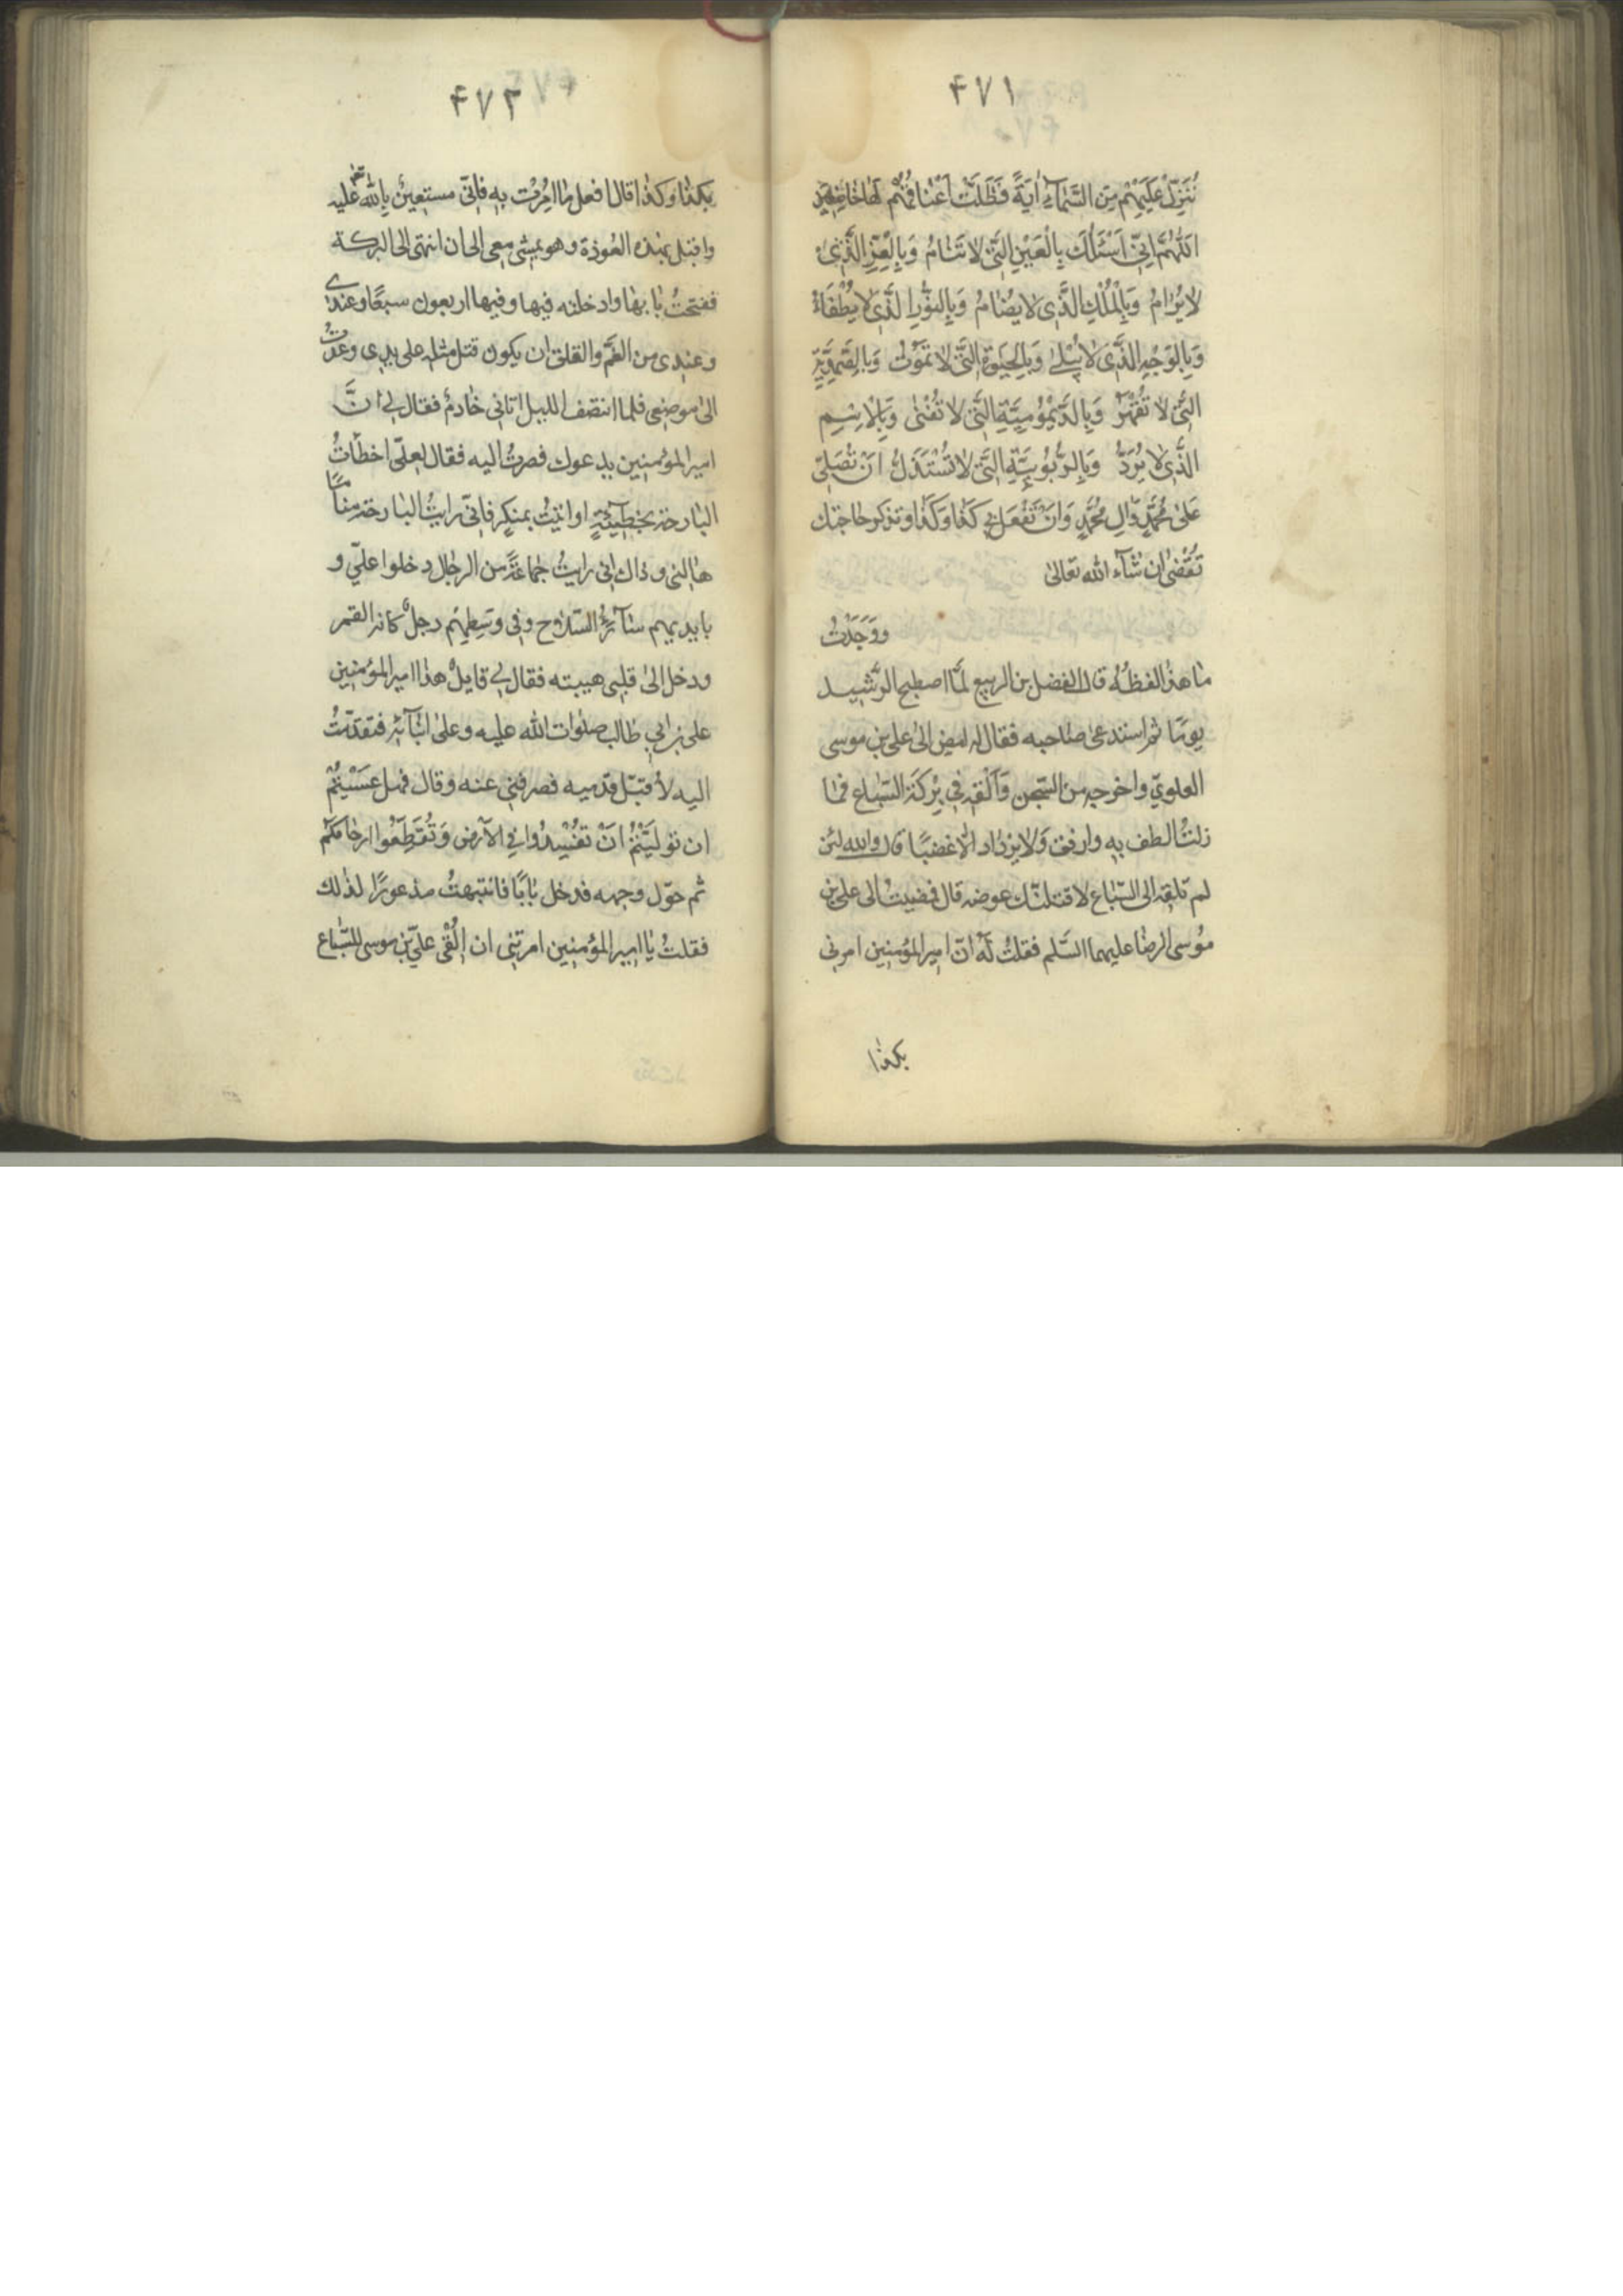 ۴۷۱
نُنَزِّلْ عَلَيْهِمْ مِنَ السَّمَآءِ اٰيَةً فَظَلَّتْ اَعْنٰاقُهُمْ لَهٰا خٰاضِعِينَ
اَللّٰهُمَّ اِنِّي اَسْئَلُكَ بِالْعَيْنِ الَّتِي لا تَنٰامُ وَبِالْعِزِّ الَّذِي
لا يُرٰامُ وَبِالْمُلْكِ الَّذِي لا يُضٰامُ وَبِالنُّورِ الَّذِي لا يُطْفَاءُ
وَبِالْوَجْهِ الَّذِي لا يُبْلىٰ وَبِالْحَيٰوةِ الَّتِي لا تَمُوتُ وَبِالصَّمَدِيَّةِ
الَّتِي لا تُقْهَرُ وَبِالدَّيْمُومِيَّةِ الَّتِي لا تَفْنىٰ وَبِالْاِسْمِ
الَّذِي لا يُرَدُّ وَبِالرُّبُوبِيَّةِ الَّتِي لا تُسْتَذَلُّ اَنْ تُصَلِّيَ
عَلىٰ مُحَمَّدٍ وَّاٰلِ مُحَمَّدٍ وَاَنْ تَفْعَلَ بِي كَذٰا وَكَذٰا وتذكر حاجتك
تُقْضىٰ اِن شٰآءَ الله تعالىٰ
ووَجَدْتُ
مٰا هذا لفظُهُ قال الفضل بن الربيع لَمَّا اصطبح الرَّشيد
يومًا ثم استدعىٰ حٰاجبه فقال له امض الىٰ علي بن موسى
العلويّ واخرجه من السّجن وَاَلْقِهِ فِي بِرْكَةِ السّبٰاع فمٰا
زلتُ الطف به وارفق وَلا يزداد الّا غضبًا قال والله لئن
لم تلقه الى السّبٰاع لاقتلنّك عوضه قال فمضيتُ الى علي بن
مُوسى الرضٰا عليهما السَّلم فقلتُ لَهُ انّ امير المؤمنين امرني
بكذا
۴۷۲
بكذٰا وكذٰا قال افعل مٰا اُمِرْتَ به فاِنّي مستعينٌ بِاللّٰه تعٰ عليه
واقبل بهذه العُوذة وهو يمشي معي الى ان انتهى الى البركة
ففتحتُ بٰابهٰا وادخلته فيها وفيها اربعون سبعًا وعندي
وعندي من الغَمّ والقلق ان يكون قتل مثله على يدي وعُدْتُ
الىٰ موضعي فلما انتصف الليل اتاني خٰادمٌ فقال لي اِنَّ
امير المؤمنين يدعوك فصرتُ اليه فقال لعلّي اخطأتُ
البٰارحة بخطيئةٍ او اتيتُ بمنكرٍ فانّي رايتُ البٰارحة منٰامًا
هٰالني وذاك اني رايتُ جمٰاعَةً من الرجٰال دخلوا عليّ و
بايديهم سٰآئرُ السّلاح وفي وسَطِهِم رجلٌ كانه القمر
ودخل الىٰ قلبي هيبته فقال لي قايلٌ هذا امير المؤمنين
علي بن ابي طالب صلوات الله عليه وعلىٰ ابٰآئِهِ فتقدّمتُ
اليه لاُقبّل قدميه فصرفني عنه وقال فهل عَسَيْتُمْ
ان تولّيْتُمْ اَنْ تفْسِدُوا في الاَرض وَتُقَطِّعُوا ارحٰامَكُم
ثم حوّل وجهه فدخل بٰابًا فانتبهتُ مذعورًا لذٰلك
فقلتُ يٰا امير المؤمنين امرتني ان اُلْقي عليّ بن موسى للسّبٰاع